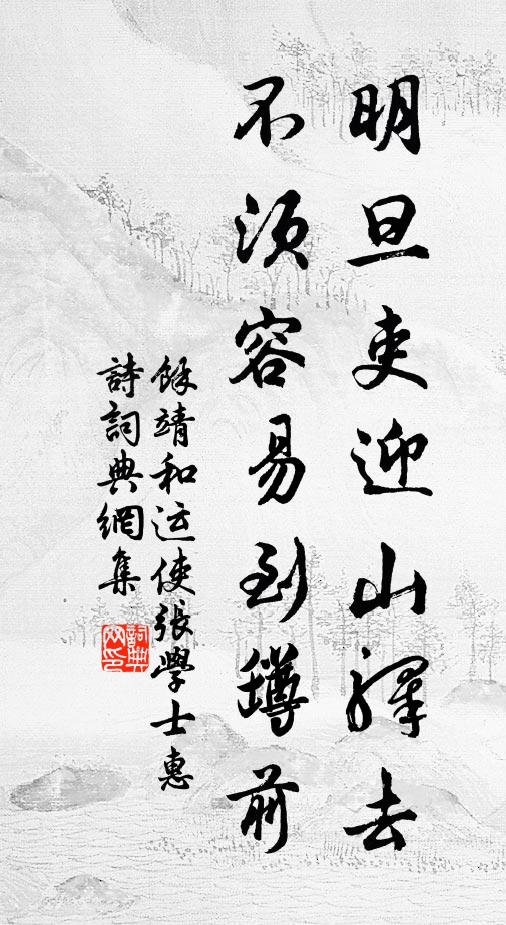 明旦吏迎山驛去
不須容易到罇前
餘靖和运使張學士惠
詩詞典網集
詞典
网印